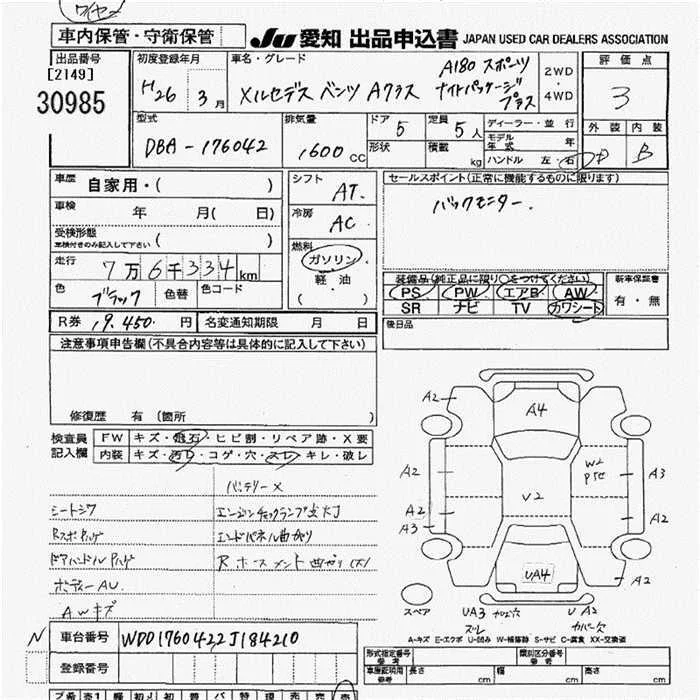 ワイヤー
車内保管・守衛保管
JU 愛知 出品申込書 JAPAN USED CAR DEALERS ASSOCIATION
出品番号
[2149]
30985
初度登録年月
H26 3月
車名・グレード
メルセデス ベンツ Aクラス
A180 スポーツ
ナイトパッケージ
プラス
2WD
・
4WD
評価点
3
外装 内装
B
型式
DBA-176042
排気量
1600cc
ドア 5
形状
定員 5人
積載 kg
ディーラー・並行
モデル年式 年
ハンドル 左・右
車歴 自家用・( )
車検 年 月( 日)
受検形態
車検付きのみ記入して下さい ( )
走行 7万6千334km
色 ブラック 色替 色コード
シフト AT
冷房 AC
燃料
ガソリン
・
軽・油
( )
セールスポイント(正常に機能するものに限ります)
バックモニター.
装備品(純正品に限り○をつけてください)
PS PW エアB AW
SR ナビ TV カワシート
新車保証書
有・無
R券 19,450 円 名変通知期限 月 日
後日品
注意事項申告欄(不具合内容等は具体的に記入して下さい)
修復歴 有(箇所 )
検査員
記入欄
FW キズ・飛石・ヒビ割・リペア跡・X要
内装 キズ・汚レ・コゲ・穴・スレ・キレ・破レ
バッテリーX
シートシワ エンジンチェックランプ点灯
エンドパネル曲がり
ボディーAU.
AWキズ
A2
A4
A2
W2
A3
V2
A2
A3
A2
UA4
A2
スペア
UA3
スレ
UA2
カバー欠
A-キズ E-エクボ U-凹み W-補修跡 S-サビ C-腐食 XX-交換済
N
車台番号 WDD1760422J184210
登録番号
形式指定番号
参考
類別区分番号
参考
車庫証明用
参考
長さ cm 幅 cm 高さ cm